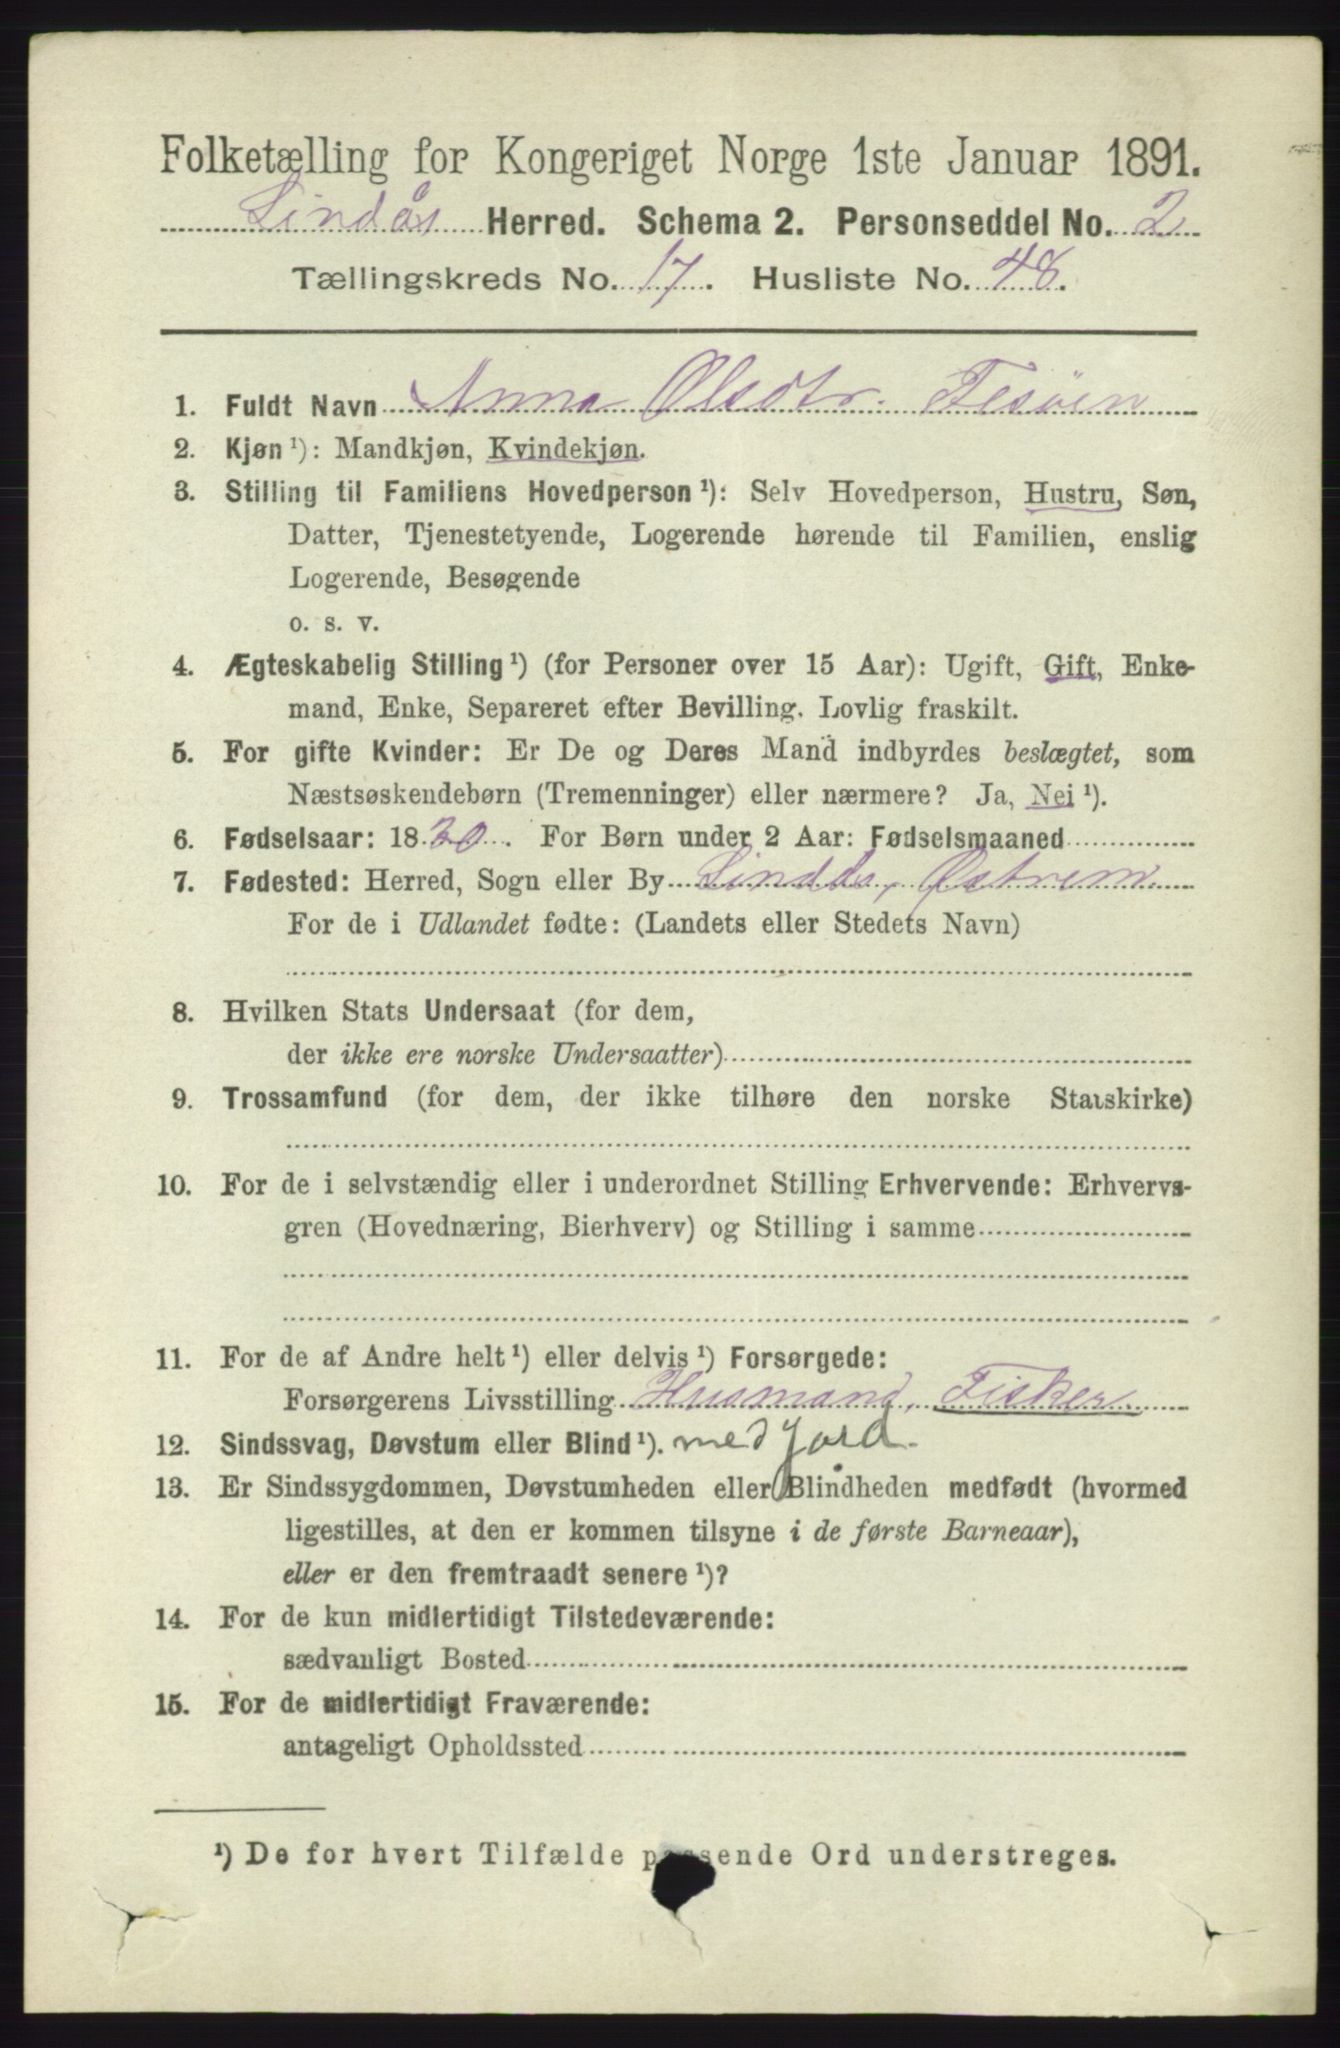 Folketælling for Kongeriget Norge 1ste Januar 1891.
Lindås Herred. Schema 2. Personseddel No. 2
Tællingskreds No. 17. Husliste No. 48.
1. Fuldt Navn Anna Olsdtr. Fesöen
2. Kjøn ¹): Mandkjøn, Kvindekjøn.
3. Stilling til Familiens Hovedperson ¹): Selv Hovedperson, Hustru, Søn,
Datter, Tjenestetyende, Logerende hørende til Familien, enslig
Logerende, Besøgende
o. s. v.
4. Ægteskabelig Stilling ¹) (for Personer over 15 Aar): Ugift, Gift, Enke-
mand, Enke, Separeret efter Bevilling. Lovlig fraskilt.
5. For gifte Kvinder: Er De og Deres Mand indbyrdes beslægtet, som
Næstsøskendebørn (Tremenninger) eller nærmere? Ja, Nei ¹).
6. Fødselsaar: 18 . For Børn under 2 Aar: Fødselsmaaned
7. Fødested: Herred, Sogn eller By Lindås, Østrem
For de i Udlandet fødte: (Landets eller Stedets Navn)
8. Hvilken Stats Undersaat (for dem,
der ikke ere norske Undersaatter)
9. Trossamfund (for dem, der ikke tilhøre den norske Statskirke)
10. For de i selvstændig eller i underordnet Stilling Erhvervende: Erhvervs-
gren (Hovednæring, Bierhverv) og Stilling i samme
11. For de af Andre helt ¹) eller delvis ¹) Forsørgede:
Forsørgerens Livsstilling Husmand, Fisker
12. Sindssvag, Døvstum eller Blind ¹). med jord.
13. Er Sindssygdommen, Døvstumheden eller Blindheden medfødt (hvormed
ligestilles, at den er kommen tilsyne i de første Barneaar),
eller er den fremtraadt senere ¹)?
14. For de kun midlertidigt Tilstedeværende:
sædvanligt Bosted
15. For de midlertidigt Fraværende:
antageligt Opholdssted
¹) De for hvert Tilfælde passende Ord understreges.